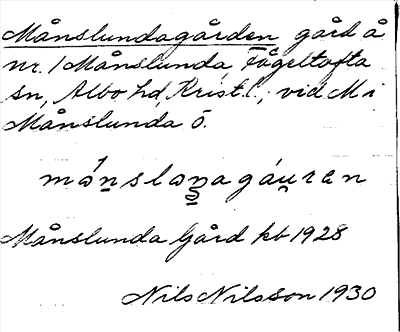 Månslundagården gård å
nr. 1 Månslunda, Fågeltofta
sn, Albo hd, Krist. l., vid M i
Månslunda ö.
månslanagáuran
Månslunda Gård kb 1928
Nils Nilsson 1930